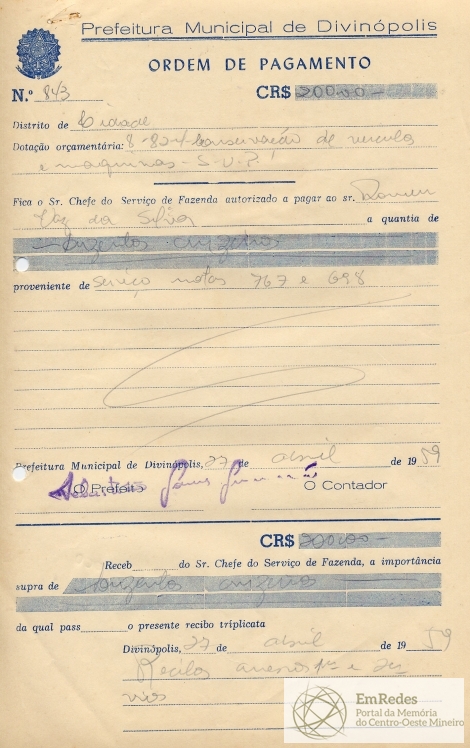 Prefeitura Municipal de Divinópolis
ORDEM DE PAGAMENTO
N.º 843 CR$ 200,00-
Distrito de Cidade
Dotação orçamentária: 8-82-4 Conservação de veiculos
e maquinas - S.V.P.
Fica o Sr. Chefe do Serviço de Fazenda autorizado a pagar ao sr.
Vaz da Silva a quantia de
Duzentos cruzeiros
proveniente de Serviço notas 767 e 698
Prefeitura Municipal de Divinópolis, 27 de abril de 1959
O Prefeito O Contador
CR$ 200,00-
Receb do Sr. Chefe do Serviço de Fazenda, a importância
supra de Duzentos cruzeiros
da qual pass o presente recibo triplicata
Divinópolis, 27 de abril de 1959
Recibos anexos
EmRedes
Portal da Memória
do Centro-Oeste Mineiro